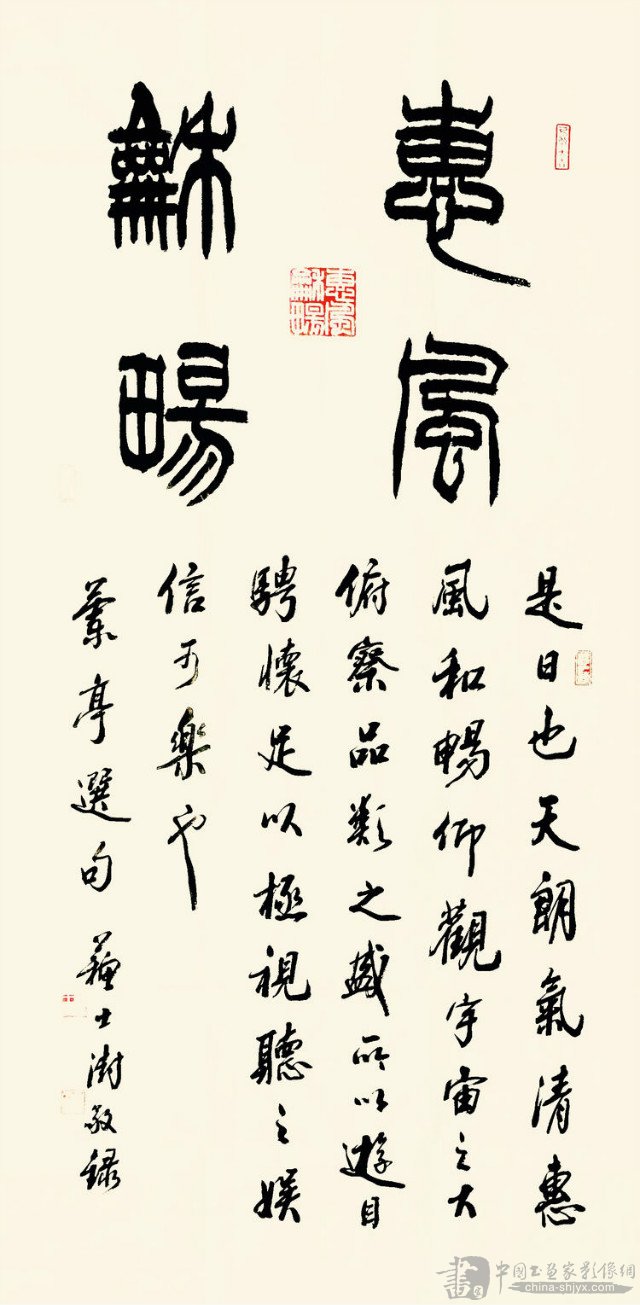 惠風
龢暘
惠風龢暘
是日也天朗氣清惠
風和暢仰觀宇宙之大
俯察品類之盛所以遊目
騁懷足以極視聽之娛
信可樂也
蘭亭選句 蘇士澍敬錄
書 中國書畫家影像網
china-shjyx.com